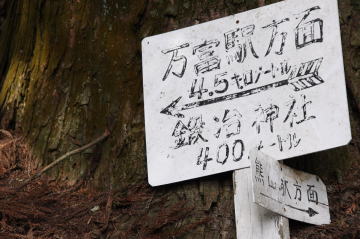 万富駅方面
4.5キロメートル
鍛冶神社
400メートル
熊山駅方面